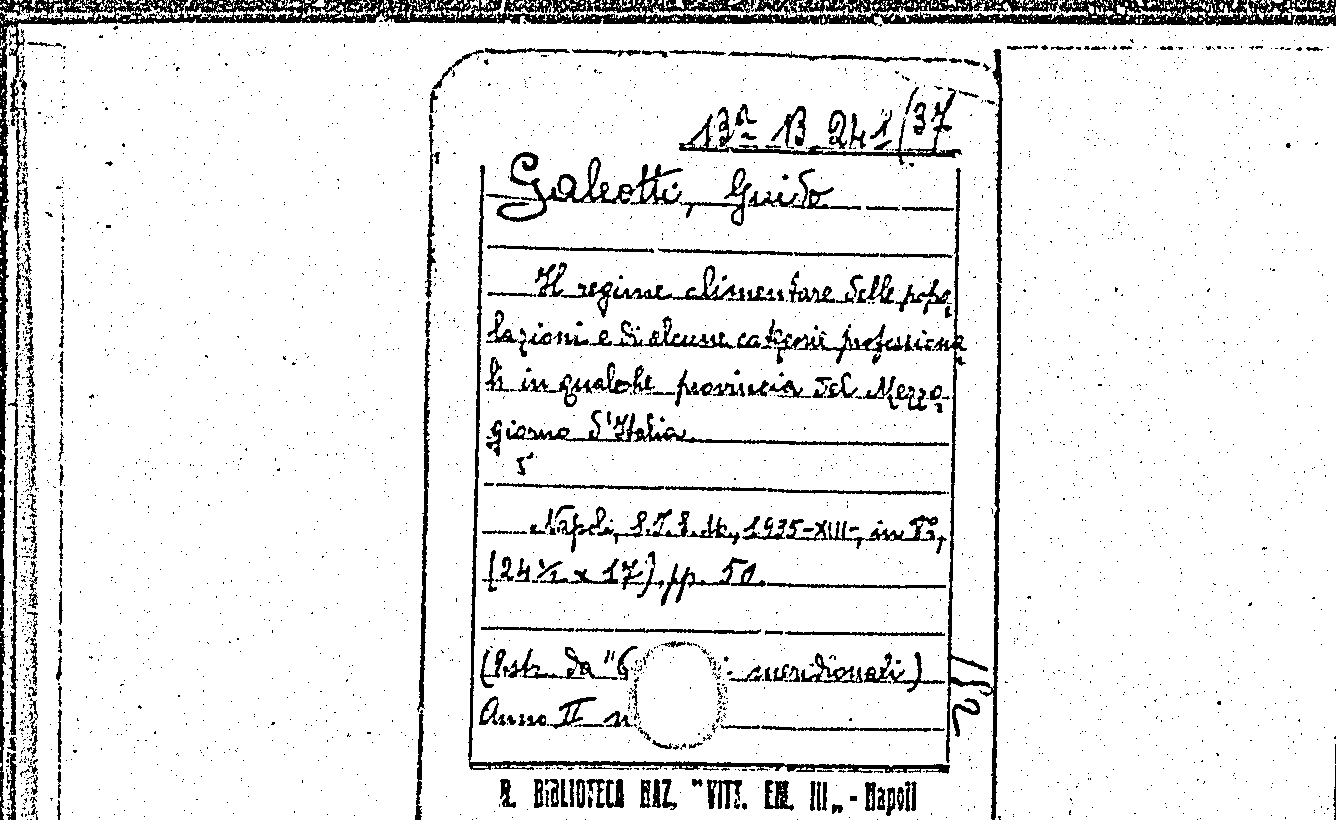 13ª B 241/37
Galeotti, Guido
Il regime alimentare delle popo-
lazioni e di alcune categorie professiona-
li in qualche provincia del Mezzo-
giorno d'Italia
Napoli, S.I.E.M., 1935-XIII-, in 8º,
(24½ x 17), pp. 50.
(Estr. da "Q meridionali)
Anno II n
152
R. BIBLIOTECA NAZ. "VITT. EM. III„ - Napoli